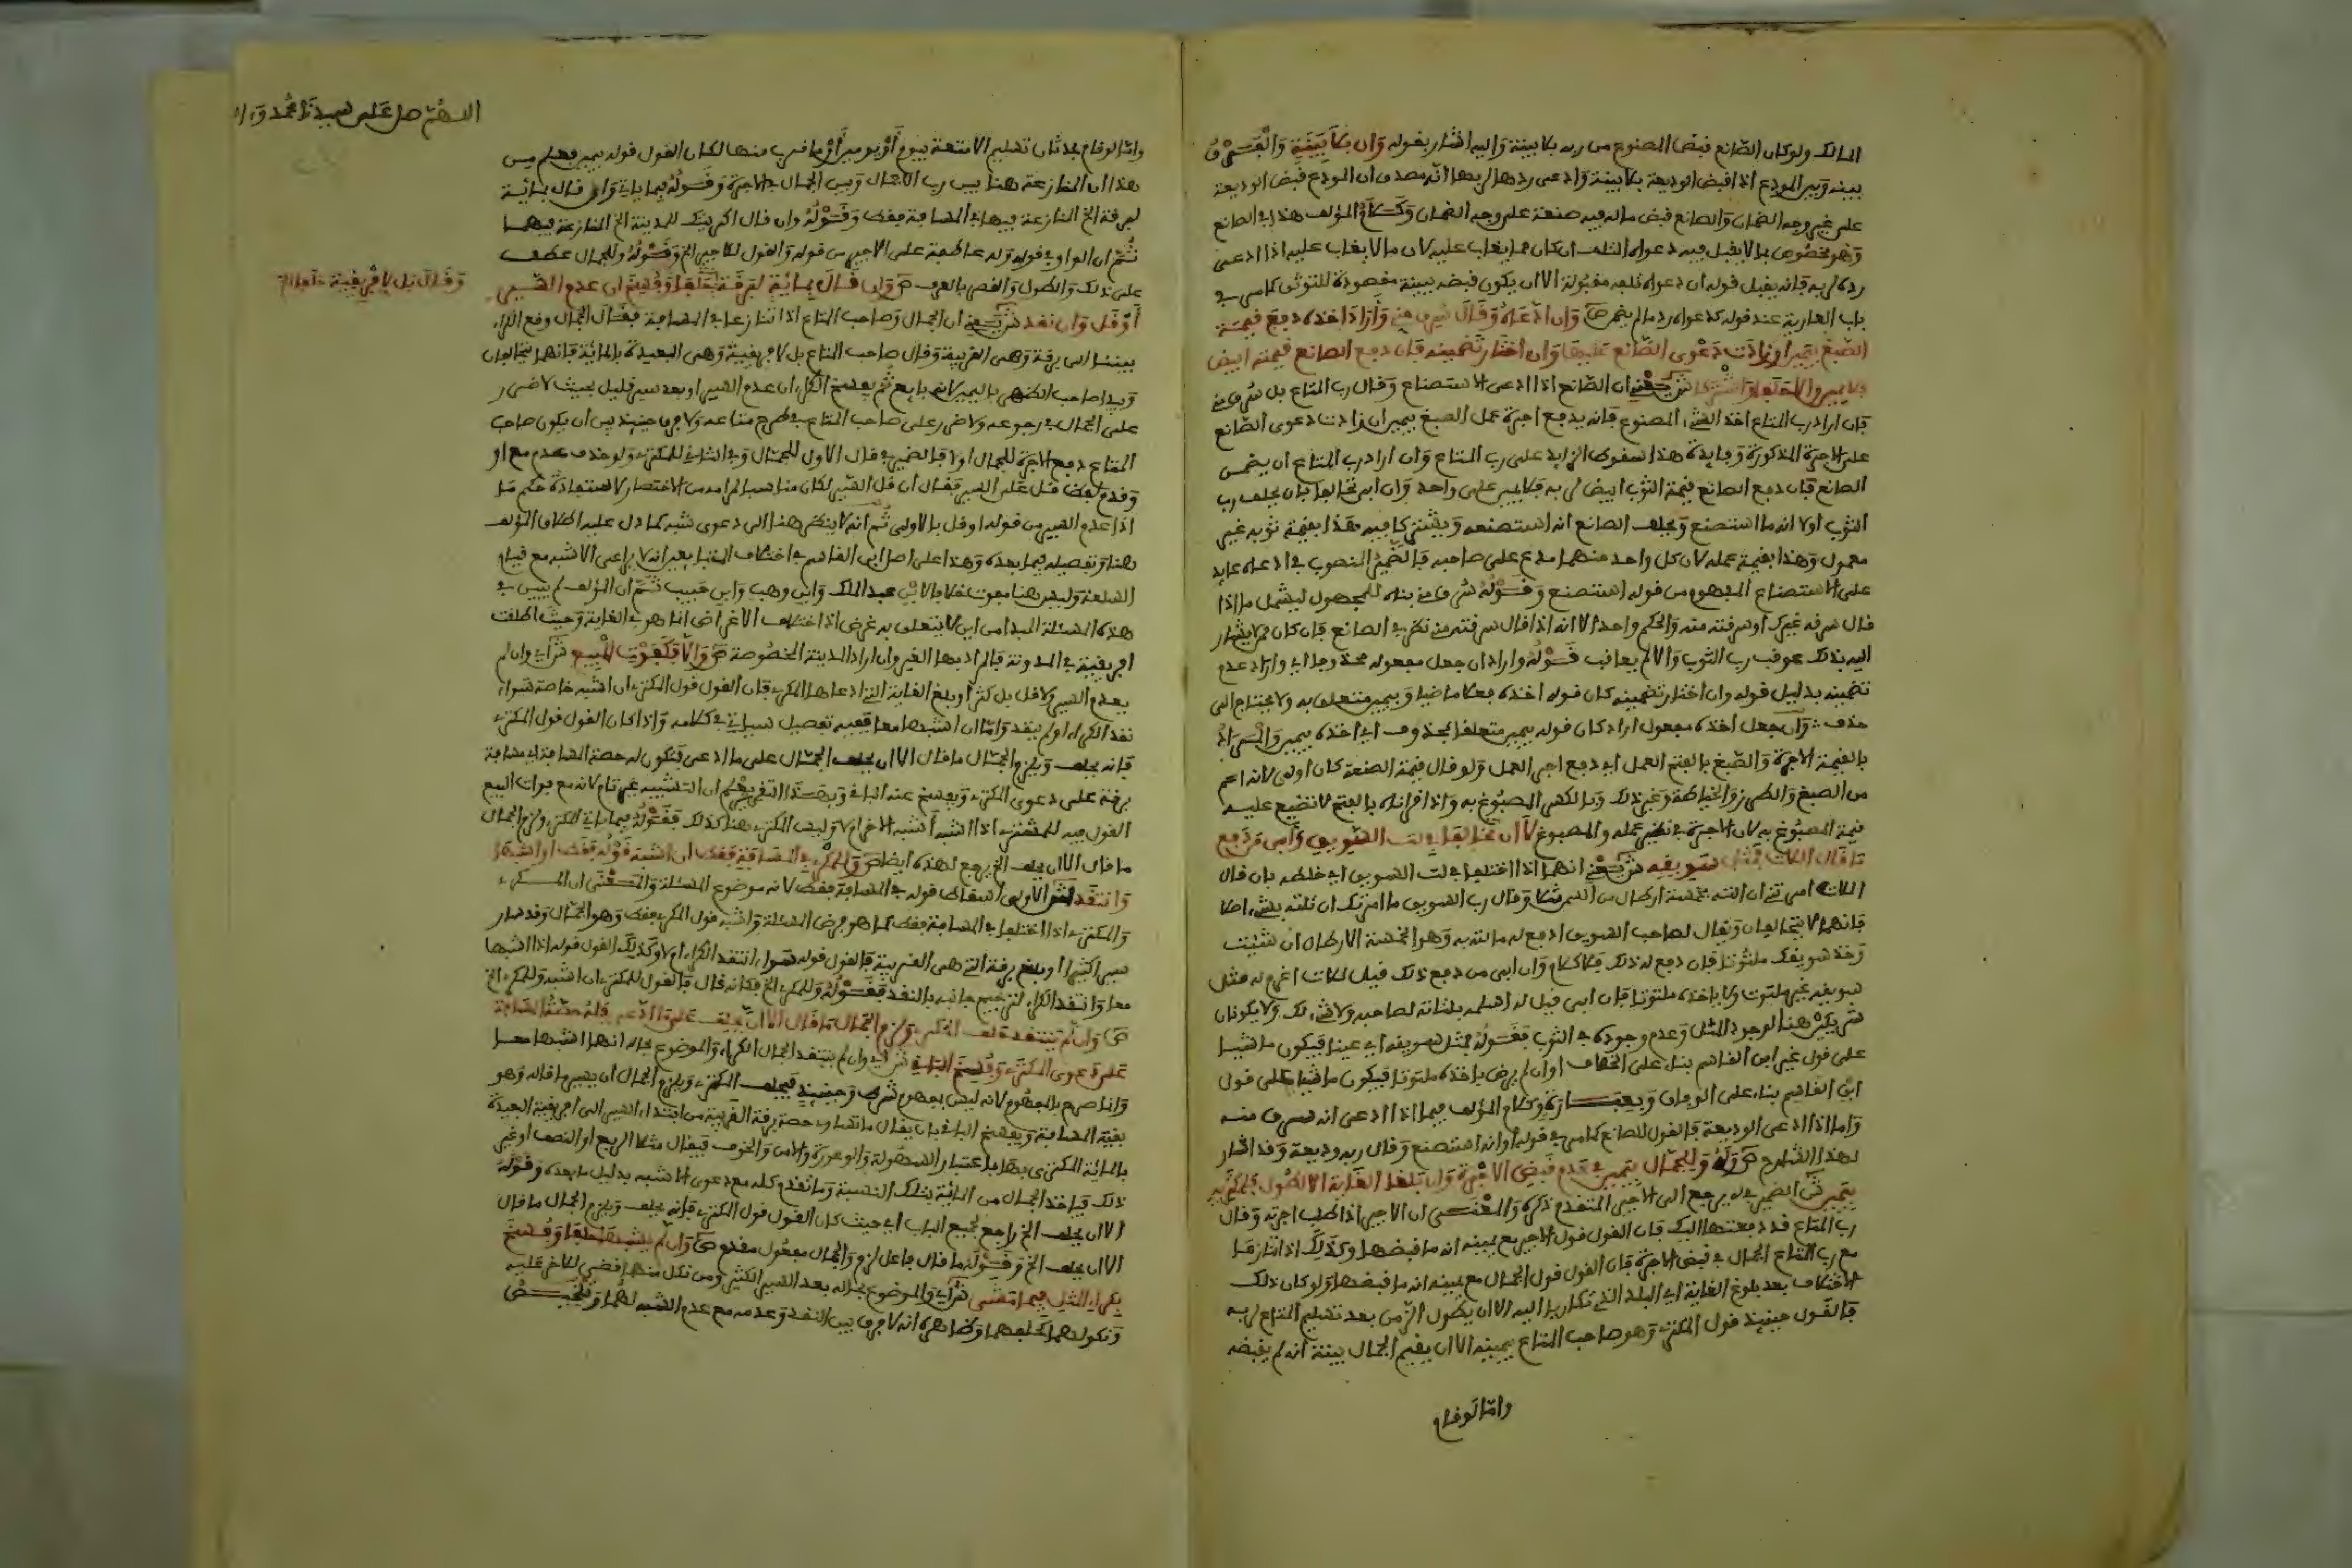 المالك ولو كان الصانع قبض المصنوع من ربه بلا بينة واليه اشار بقوله وان بلا بينة والفرق
بينه وبين المودع اذا قبض الوديعة بلا بينة وادعى ردها لربها انه مصدق ان المودع قبض الوديعة
على غير وجه الضمان والصانع قبض ما له فيه صنعة على وجه الضمان وكلام المؤلف هذا في الصانع
وهو مخصوص بما لا يقبل فيه دعواه التلف ان كان مما يغاب عليه لان ما لا يغاب عليه اذا ادعى
رده لربه فانه يقبل قوله ان دعواه تلفه مقبولة الا ان يكون قبضه ببينة مقصودة للتوثق كما مر في
باب العارية عند قوله كدعواه رد ما لم يضمن ص وان ادعاه وقال سرق مني واراد اخذه دفع قيمة
الصبغ بيمين ان زادت دعوى الصانع عليها وان اختار تضمينه فان دفع الصانع قيمته ابيض
فلا يمين والا حلفا واشتركا ش يعني ان الصانع اذا ادعى الاستصناع وقال رب المتاع بل سرق مني
فان اراد رب المتاع اخذ الشيء المصنوع فانه يدفع اجرة عمل الصبغ بيمين ان زادت دعوى الصانع
على الاجرة المذكورة وفايدة هذا سقوط الزايد على رب المتاع وان اراد رب المتاع ان يضمن
الصانع فان دفع الصانع قيمة الثوب ابيض لربه فلا يمين على واحد وان ابى تحالفا بان يحلف رب
الثوب اولا انه ما استصنع ويحلف الصانع انه استصنعه ويشتركا فيه هذا بقيمة ثوبه غير
معمول وهذا بقيمة عمله لان كل واحد منهما مدع على صاحبه فالضمير المنصوب في ادعاه عايد
على الاستصناع المفهوم من قوله استصنع وقوله سرق مني بناه للمجهول ليشمل ما اذا
قال سرقه غيرك او سرقته منه والحكم واحد الا انه اذا قال سرقته مني نظر في الصانع فان كان ممن لا يشار
اليه بذلك عوقب رب الثوب والا لم يعاقب قوله واراد ان جعل مفعوله محذوفا اي واراد عدم
تضمينه بدليل قوله وان اختار تضمينه كان قوله اخذه فعلا ماضيا وبيمين متعلق به ولا يحتاج الى
حذف وان جعل اخذه مفعول اراد كان قوله بيمين متعلقا بمحذوف اي اخذه بيمين والمراد
بالقيمة الاجرة والصبغ بالفتح العمل اي دفع اجر العمل ولو قال قيمة الصنعة كان اولى لانه اعم
من الصبغ والطرز والخياطة وغير ذلك وبالكسر المصبوغ به واذا قراناه بالفتح لا تضيع عليه
قيمة المصبوغ به لان الاجرة في نظير عمله والمصبوغ لا ان تخالفا في لت السويق وابى من دفع
ما قال اللات فمثل سويقه ش يعني انهما اذا اختلفا في لت السويق اي خلطه بان قال
اللات امرتني ان الته بخمسة ارطال من السمن مثلا وقال رب السويق ما امرتك ان تلته بشيء اصلا
فانهما لا يتحالفان ويقال لصاحب السويق ادفع له ما لته به وهو الخمسة الارطال ان شئت
وخذ سويقك ملتوتا فان دفع له ذلك فلا كلام وان ابى من دفع ذلك قيل للات اغرم له مثل
سويقه غير ملتوت ولا ياخذه ملتوتا فان ابى قيل له اسلمه بلتاته لصاحبه ولا شيء لك ولا يكونان
شريكين هنا لوجود المثل وعدم وجوده في الثوب فقوله فمثل سويقه اي عينا فيكون ماشيا
على قول غير ابن القاسم بناء على الخلاف او ان لم يرض باخذه ملتوتا فيكون ماشيا على قول
ابن القاسم بناء على الوفاق وبعبارة وكلام المؤلف فيما اذا ادعى انه سرق منه
واما اذا ادعى الوديعة فالقول للصانع كما مر في قوله وانه استصنع وقال ربه وديعة وقد اشار
لهذا الشارح ص وله وللجمال بيمين في عدم قبض الاجرة وان بلغا الغاية الا لطول فلمكتريه
بيمين ش الضمير في له يرجع الى الاجير المتقدم ذكره والمعنى ان الاجير اذا طلب اجرته وقال
رب المتاع قد دفعتها اليك فان القول قول الاجير مع يمينه انه ما قبضها وكذلك اذا تنازعا
مع رب المتاع الجمال في قبض الاجرة فان القول قول الجمال مع يمينه انه ما قبضها ولو كان ذلك
الاختلاف بعد بلوغ الغاية اي البلد الذي تكاريا اليه الا ان يطول الزمن بعد تسليم المتاع لربه
فالقول حينيذ قول المكتري وهو صاحب المتاع بيمينه الا ان يقيم الجمال بينة انه لم يقبضه
واما لو قام
اللهم صل على سيدنا محمد و
واما لو قام بحدثان تسليم الامتعة بيوم او يومين او ما قرب منها لكان القول قوله بيمين فعلم من
هذا ان المنازعة هنا بين رب الاحمال وبين الجمال في الاجرة وقوله فيما ياتي وان قال بمائة
لبرقة الخ المنازعة فيها في المسافة فقط وقوله وان قال اكريتك للمدينة الخ المنازعة فيهما
ثم ان الواو في قوله وله عاطفة على الاجير من قوله والقول للاجير الخ وقوله وللجمال عطف
على ذلك والطول والقصر بالعرف ص وان قال بمائة لبرقة
وقال بل لافريقية حلفا
وفسخ ان عدم السير
او قل وان نقد ش يعني ان الجمال وصاحب المتاع اذا تنازعا في المسافة فقال الجمال وقع الكراء
بيننا الى برقة وهي القريبة وقال صاحب المتاع بل لافريقية وهي البعيدة بالمائة فانهما يتحالفان
ويبدا صاحب الظهر باليمين لانه بايع ثم يفسخ الكراء ان عدم السير او بعد سير قليل بحيث لا ضرر
على الجمال في رجوعه ولا ضرر على صاحب المتاع في طرح متاعه ولا فرق حينيذ بين ان يكون صاحب
المتاع دفع الاجرة للجمال اولا فالضمير في قال الاول للجمال وفي الثاني للمكتري ولو حذف عدم مع او
وقدم لفظ قل على السير فقال ان قل السير لكان مناسبا لمرامه من الاختصار لاستفادة حكم ما
اذا عدم السير من قوله او قل بالاولى ثم انه لا ينظر هنا الى دعوى شبه كما دل عليه اطلاق المؤلف
هنا وتفصيله فيما بعده وهذا على اصل ابن القاسم في اختلاف المتبايعين انه لا يراعى الاشبه مع قيام
السلعة وليس هنا فوت خلافا لابن عبد الملك وابن وهب وابن حبيب ثم ان المؤلف لم يبين في
هذه المسئلة المبدا من اين لا يتعلق به غرض اذ اختلاف الاغراض انما هو في الغاية وحيث اطلقت
افريقية في المدونة فالمراد بها القيروان اراد المدينة المخصوصة ص والا فكفوت المبيع ش اي وان لم
يعدم السير ولا قل بل كثر او بلغ الغاية التي ادعاها المكري فان القول قول المكتري ان اشبه خاصة سواء
نقد الكراء او لم ينقد واما ان اشبها معا ففيه تفصيل سياتي في كلامه واذا كان القول قول المكتري
فانه يحلف ويلزم الجمال ما قال الا ان يحلف الجمال على ما ادعى فتكون له حصة المسافة اي مسافة
برقة على دعوى المكتري ويفسخ عنه الباقي وبهذا التقرير يعلم ان التشبيه غير تام لانه مع فوات المبيع
القول فيه للمشتري اذا اشبه اشبه الاخر ام لا وليس المكتري هنا كذلك فقوله فيما ياتي للمكتري ولزم الجمال
ما قال الا ان يحلف الخ يرجع لهذه ايضا ص وللمكري في المسافة فقط ان اشبه قوله فقط او اشبها
وانتقد ش الاولى اسقاط قوله في المسافة فقط لانه موضوع المسئلة والمعنى ان المكري
والمكتري اذا اختلفا في المسافة فقط كما هو فرض المسئلة واشبه قول المكري فقط وهو الجمال وقد سار
سيرا كثيرا او بلغ برقة التي هي القريبة فالقول قوله سواء انتقد الكراء ام لا وكذلك القول قوله اذا اشبها
معا وانتقد الكراء لترجيح جانبه بالنقد فقوله وللمكري الخ فكانه قال فالقول للمكتري ان اشبه وللمكري الخ
ص وان لم ينتقد حلف المكتري ولزم الجمال ما قال الا ان يحلف على ما ادعى فله حصة المسافة
على دعوى المكتري وفسخ الباقي ش اي وان لم ينتقد الجمال الكراء والموضوع بحاله انهما اشبها معا
وانما صرح بالمفهوم لانه ليس بمفهوم شرط وحينيذ فيحلف المكتري ويلزم الجمال ان يصير ما قاله وهو
بقية المسافة ويفسخ الباقي بان يقال ما تساوي حصة برقة القريبة من ابتداء السير الى افريقية البعيدة
بالمائة المكتري بها باعتبار السهولة والوعورة والامن والخوف فيقال مثلا الربع او النصف او غير
ذلك فياخذ الجمال من المائة بتلك النسبة وما تقدم كله مع دعوى الاشبه بدليل ما بعده وقوله
الا ان يحلف الخ راجع لجميع الباب اي حيث كان القول قول المكتري فانه يحلف ويلزم الجمال ما قال
الا ان يحلف الخ وقوله ما قال فاعل لزم والجمال مفعول مقدم ص وان لم يشبها حلفا وفسخ
بكراء المثل فيما مشى ش اي والموضوع بحاله بعد السير الكثير ومن نكل منهما قضي للاخر عليه
ونكولهما كحلفهما وظاهره انه لا فرق بين النقد وعدمه مع عدم الشبه لهما